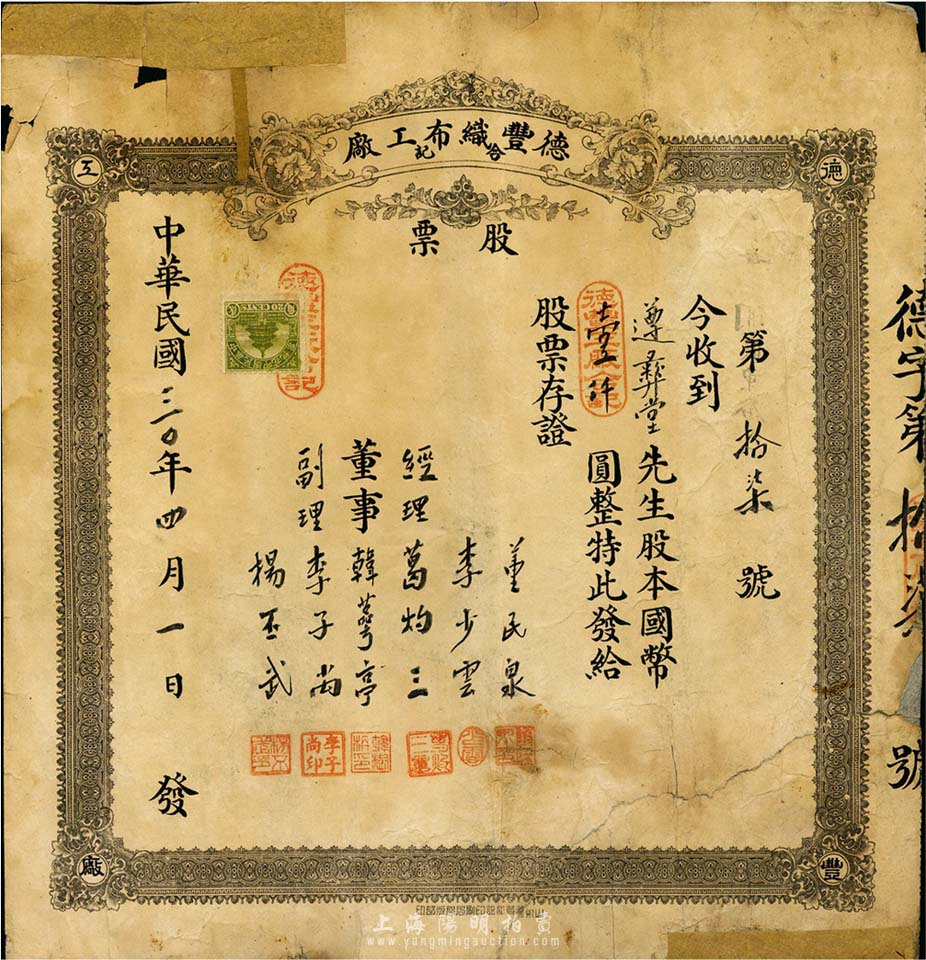 德豐織布工廠
合記
股票
第拾柒號
今收到
遵彝堂先生股本國幣
壹仟圓整特此發給
股票存證
董民泉
李少雲
經理葛灼三
董事韓蕚亭
副理李子尚
楊丕武
中華民國三十年四月一日發
德字第拾柒號
德
豐
工
廠
20 CENTS
李子尚印
上海陽明拍賣
www.yangmingauction.com